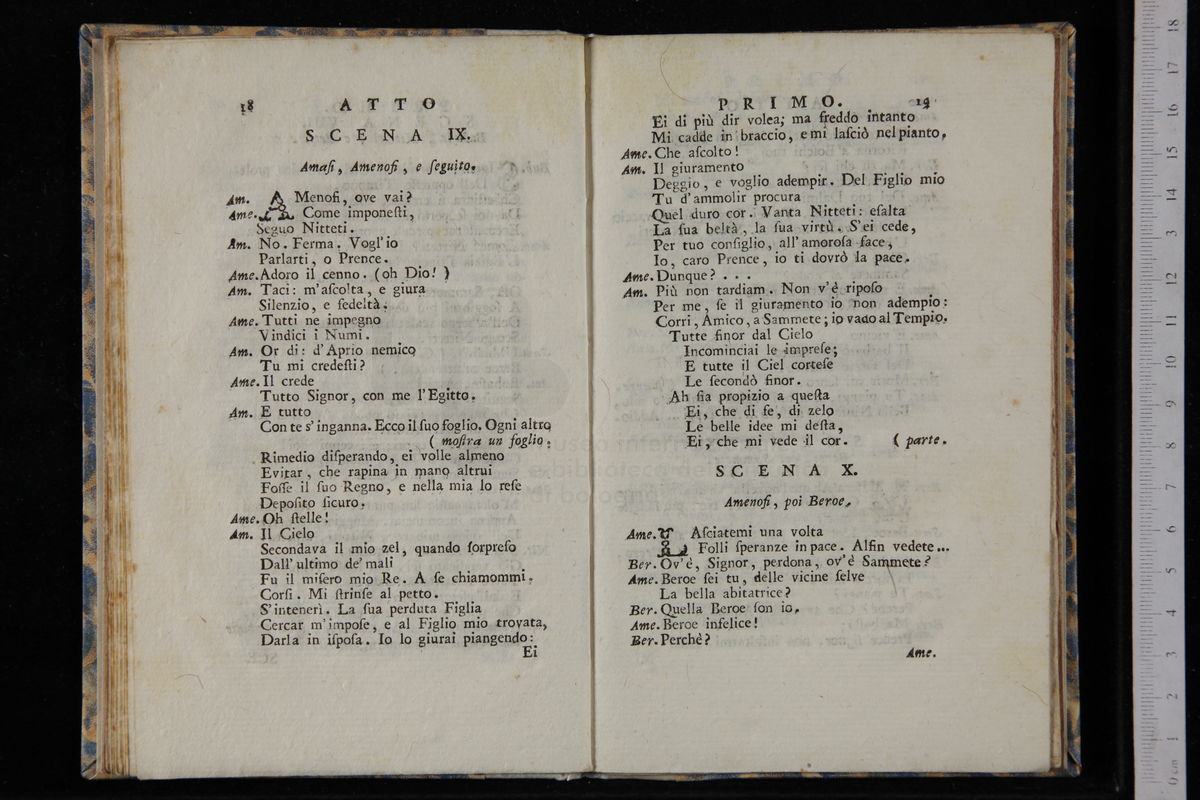 18 ATTO
SCENA IX.
Amasi, Amenosi, e seguito.
Am. AMenofi, ove vai?
Ame. Come imponeſti,
Seguo Nitteti.
Am. No. Ferma. Vogl'io
Parlarti, o Prence.
Ame. Adoro il cenno. (oh Dio! )
Am. Taci: m'aſcolta, e giura
Silenzio, e fedeltà.
Ame. Tutti ne impegno
Vindici i Numi.
Am. Or di: d'Aprio nemico
Tu mi credeſti?
Ame. Il crede
Tutto Signor, con me l'Egitto.
Am. E tutto
Con te s'inganna. Ecco il ſuo foglio. Ogni altro
( moſtra un foglio.
Rimedio diſperando, ei volle almeno
Evitar, che rapina in mano altrui
Foſſe il ſuo Regno, e nella mia lo reſe
Depoſito ſicuro.
Ame. Oh ſtelle!
Am. Il Cielo
Secondava il mio zel, quando ſorpreſo
Dall'ultimo de'mali
Fu il miſero mio Re. A ſe chiamommi.
Corſi. Mi ſtrinſe al petto.
S'intenerì. La ſua perduta Figlia
Cercar m'impoſe, e al Figlio mio trovata,
Darla in iſpoſa. Io lo giurai piangendo:
Ei
PRIMO. 19
Ei di più dir volea; ma freddo intanto
Mi cadde in braccio, e mi laſciò nel pianto.
Ame. Che aſcolto!
Am. Il giuramento
Deggio, e voglio adempir. Del Figlio mio
Tu d'ammolir procura
Quel duro cor. Vanta Nitteti: eſalta
La ſua beltà, la ſua virtù. S'ei cede,
Per tuo conſiglio, all'amoroſa face,
Io, caro Prence, io ti dovrò la pace.
Ame. Dunque? . . .
Am. Più non tardiam. Non v'è ripoſo
Per me, ſe il giuramento io non adempio:
Corri, Amico, a Sammete; io vado al Tempio.
Tutte finor dal Cielo
Incominciai le impreſe;
E tutte il Ciel corteſe
Le ſecondò finor.
Ah ſia propizio a queſta
Ei, che di ſe, di zelo
Le belle idee mi deſta,
Ei, che mi vede il cor. ( parte.
SCENA X.
Amenofi, poi Beroe.
Ame. LAſciatemi una volta
Folli ſperanze in pace. Alfin vedete...
Ber. Ov'è, Signor, perdona, ov'è Sammete?
Ame. Beroe ſei tu, delle vicine ſelve
La bella abitatrice?
Ber. Quella Beroe ſon io.
Ame. Beroe infelice!
Ber. Perchè?
Ame.